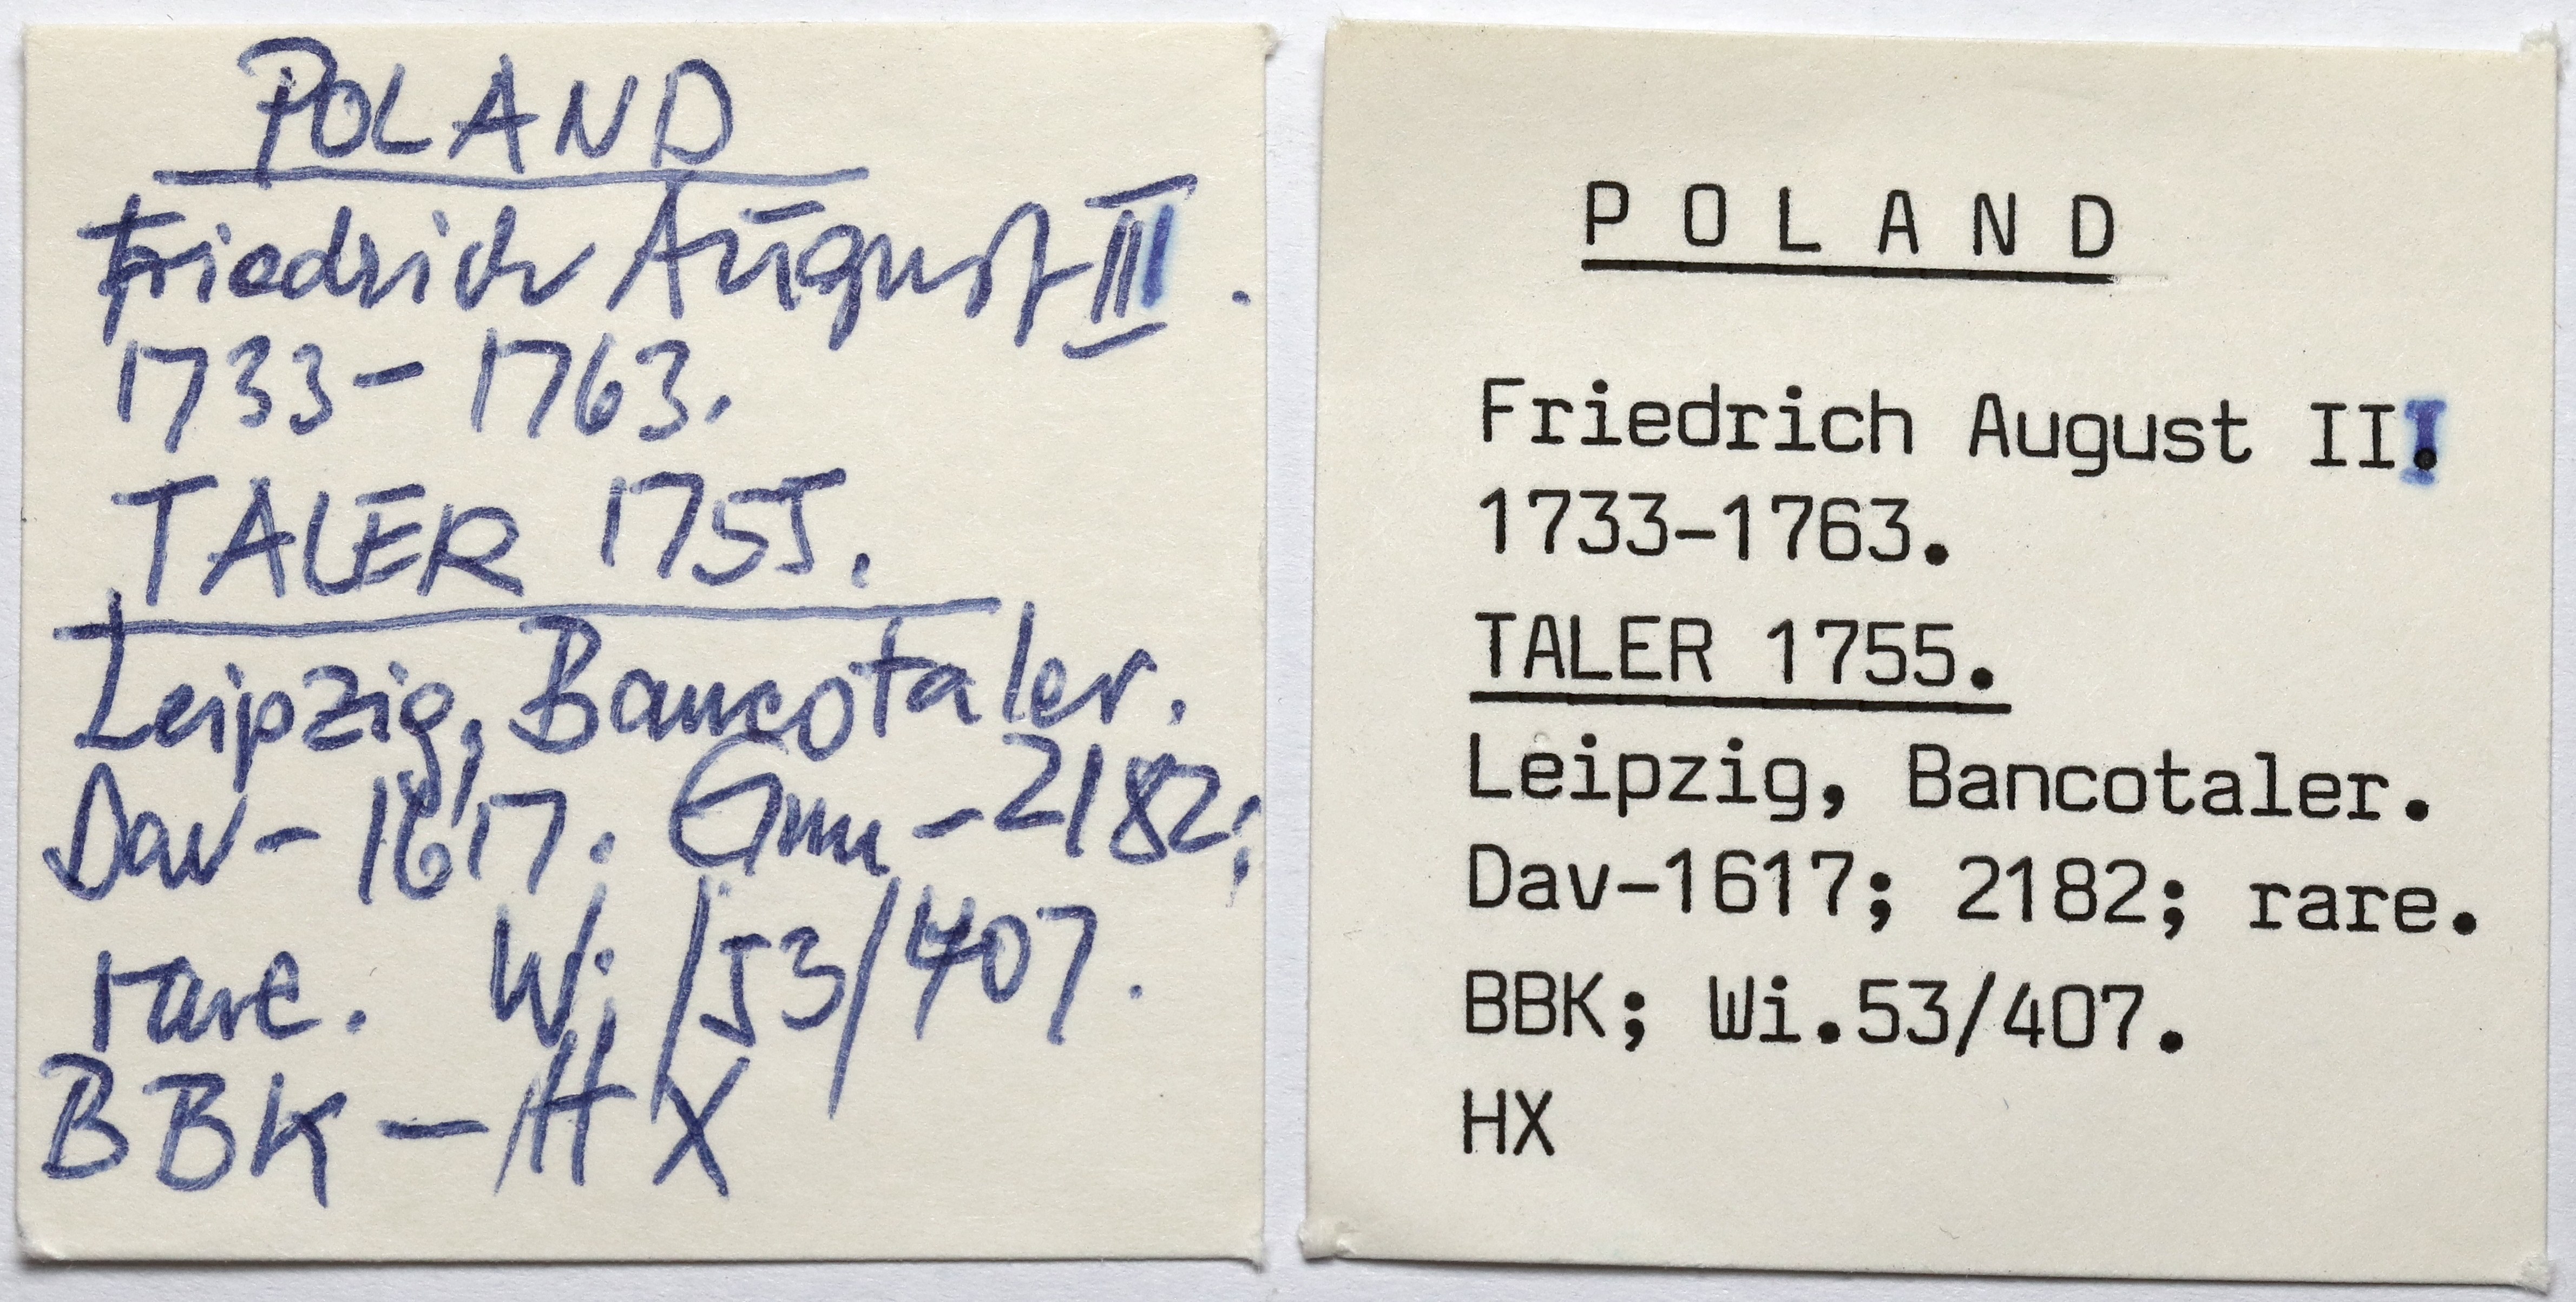 POLAND
Friedrich August III.
1733-1763.
TALER 1755.
Leipzig, Bancotaler.
Dav-1617. Gum-2182;
rare. Wi/53/407.
BBK-HX
POLAND
Friedrich August III.
1733-1763.
TALER 1755.
Leipzig, Bancotaler.
Dav-1617; 2182; rare.
BBK; Wi.53/407.
HX